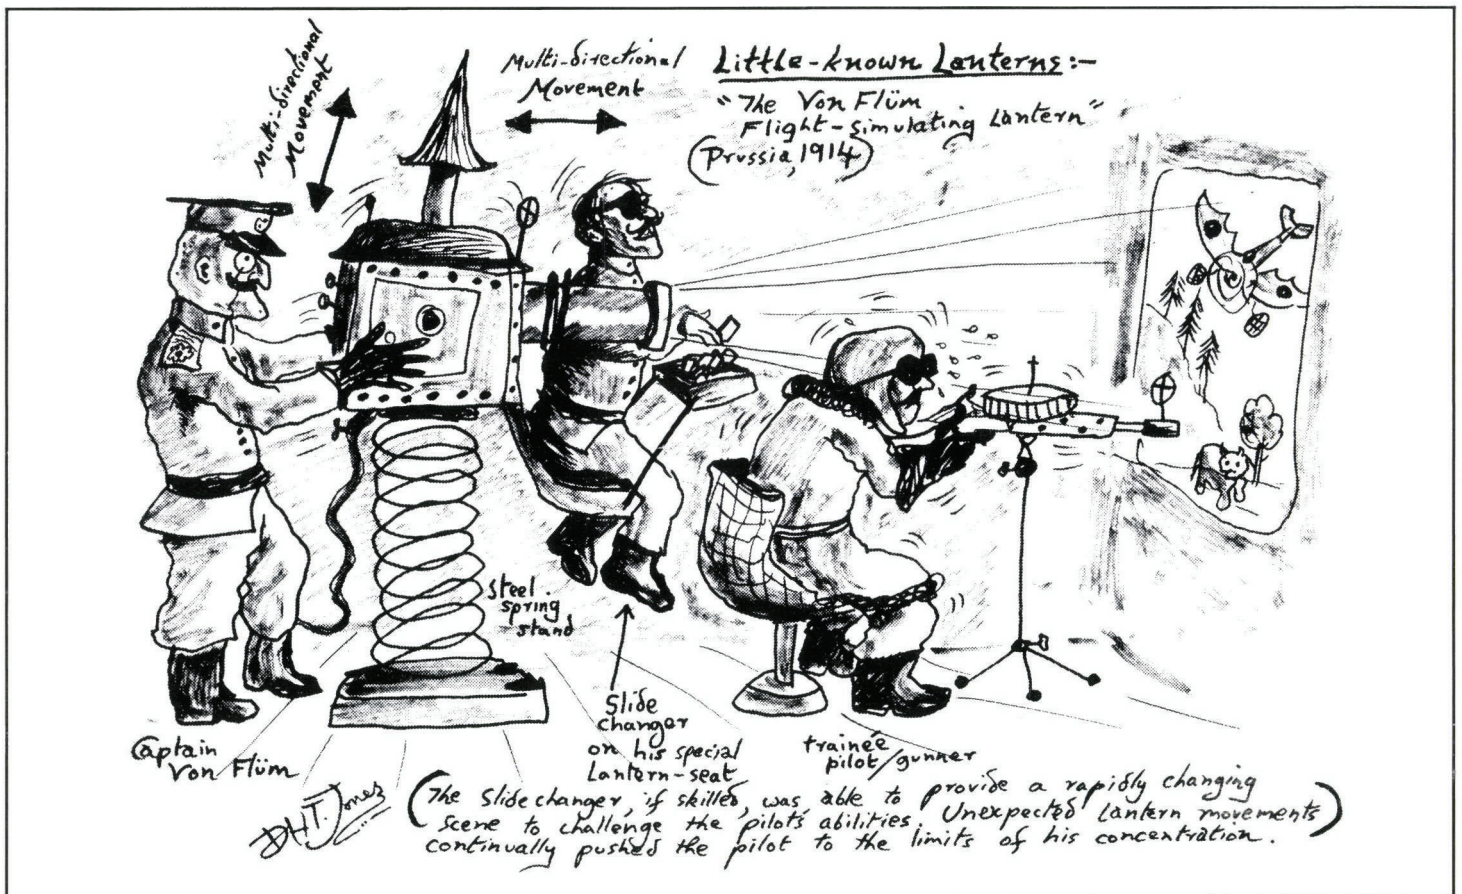 Multi-directional
Movement
Multi-directional
Movement
Little-known Lanterns:-
"The Von Flüm
Flight-simulating Lantern"
(Prussia, 1914)
Steel
spring
stand
Captain
Von Flüm
Slide
changer
on his special
Lantern-seat
trainée
pilot/gunner
DHT. Jones
(The Slide changer, if skilled, was able to provide a rapidly changing
scene to challenge the pilots abilities. Unexpected Lantern movements)
continually pushed the pilot to the limits of his concentration.